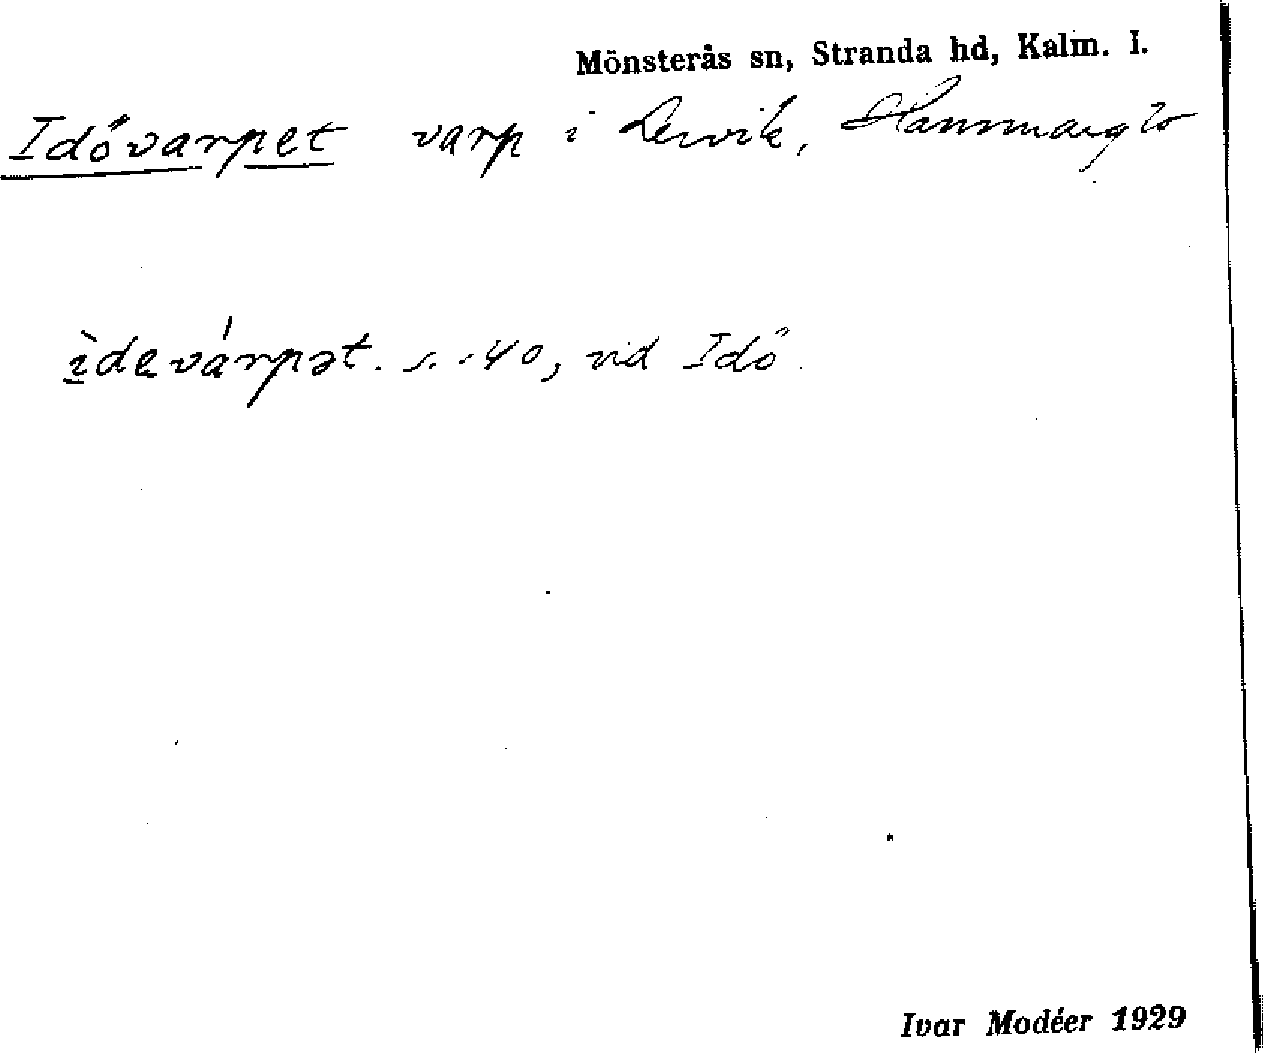 Mönsterås sn, Stranda hd, Kalm. l.
Idövarpet varp i Lervik,
ìdevárpət. s. -40, vid Idö.
Ivar Modéer 1929